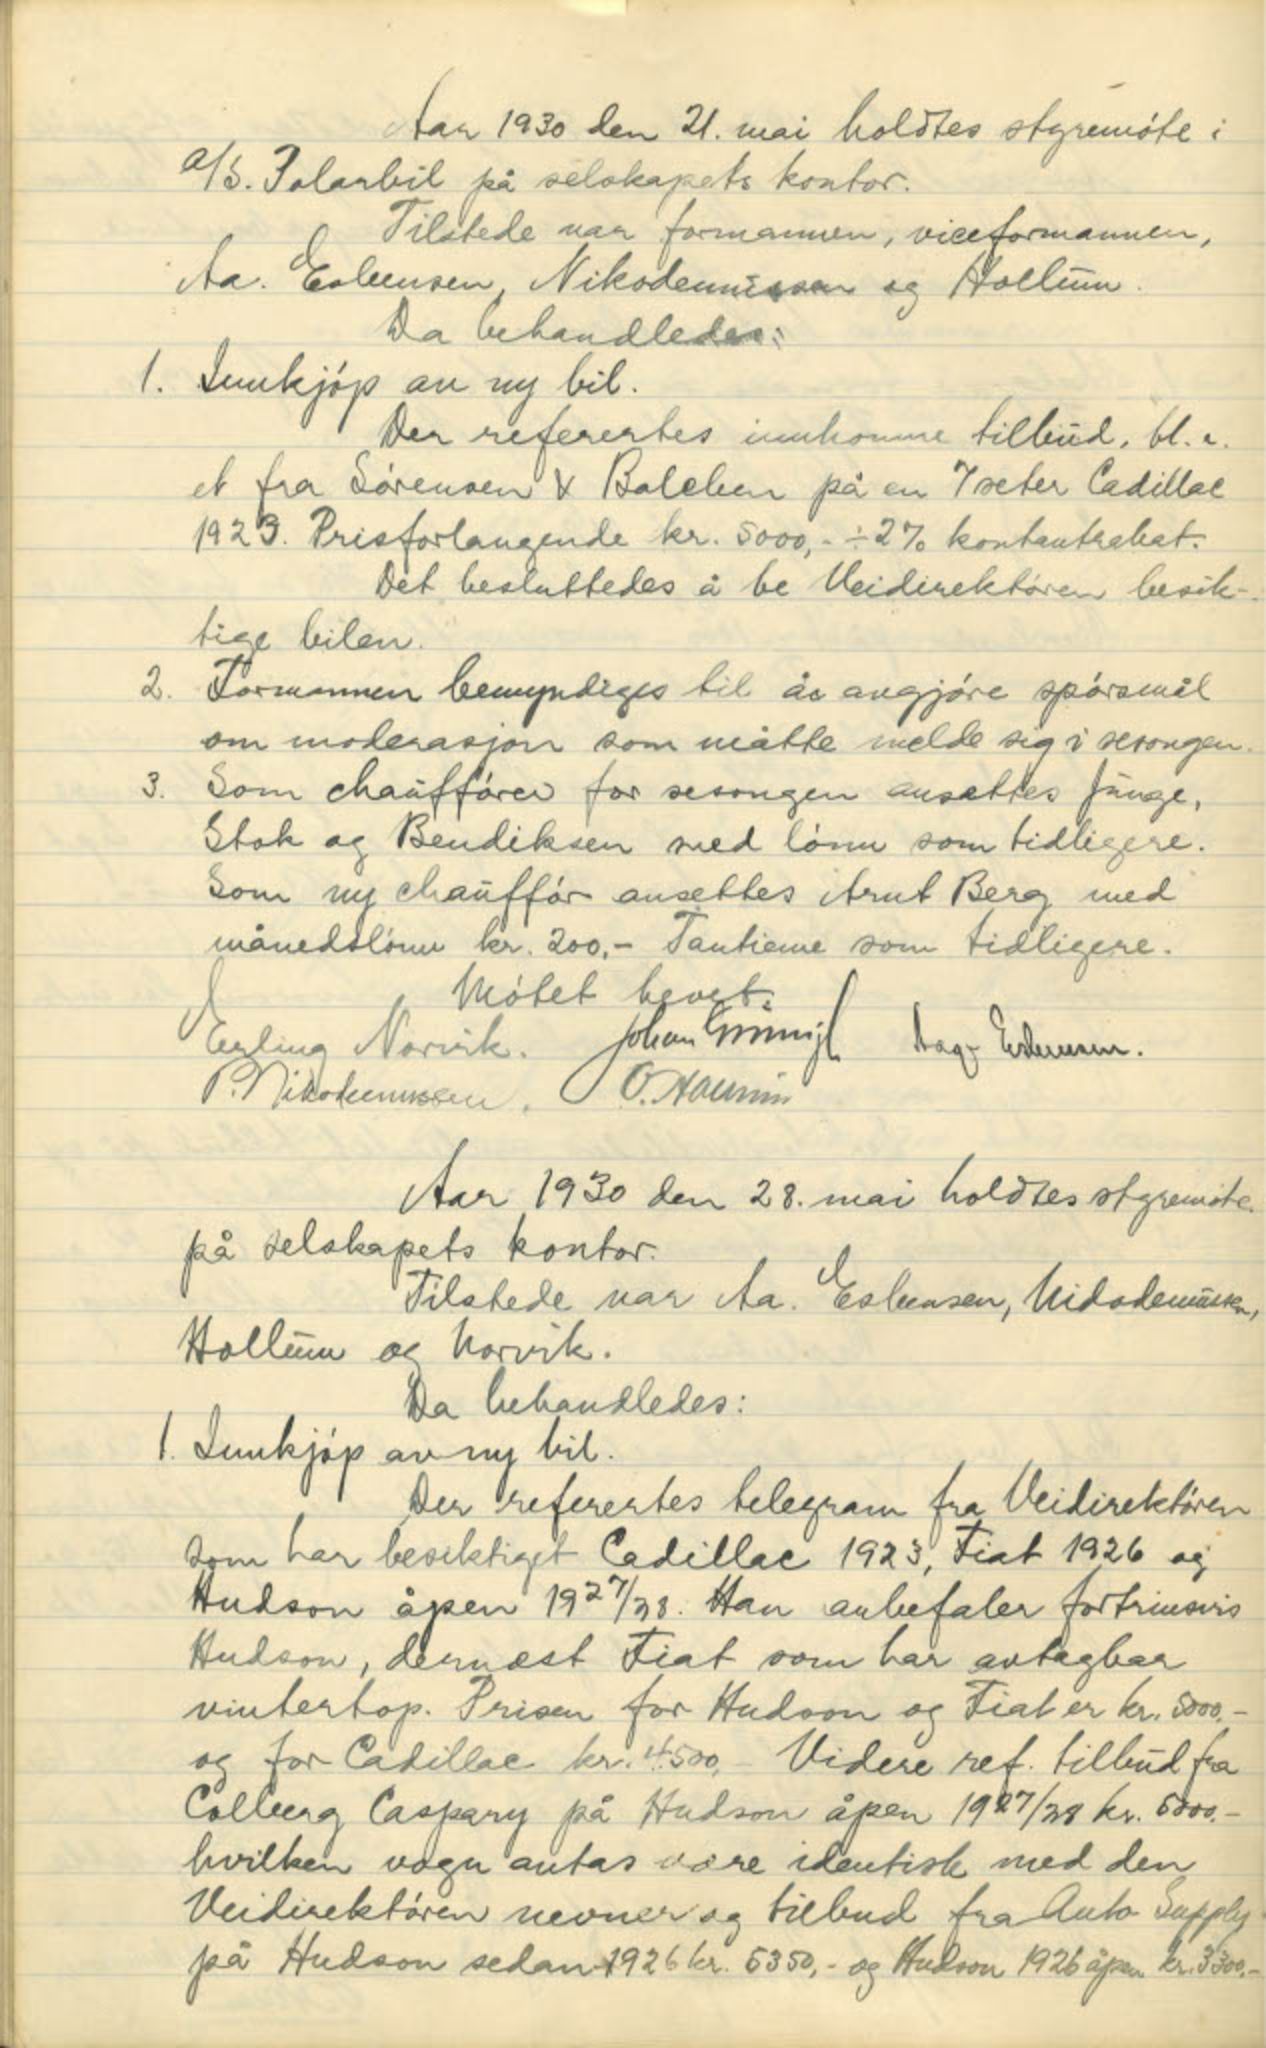 Aar 1930 den 21. mai holdtes styremöte i
A/S. Polarbil på selskapets kontor.
Tilstede var formannen, viceformannen,
Aa. Esbensen, Nikodemussen og Hollum.
Da behandledes:
1. Innkjöp av ny bil.
Der referertes innkomne tilbud, bl. a.
et fra Sörensen & Balchen på en 7 seter Cadillac
1923. Prisforlangende kr. 5000,- ÷ 2% kontantrabat.
Det besluttedes å be Veidirektören besik-
tige bilen.
2. Formannen bemyndiges til å avgjöre spörsmål
om moderasjon som måtte melde sig i sesongen.
3. Som chaufförer for sesongen ansettes Junge,
Stok og Bendiksen med lönn som tidligere.
Som ny chafför ansettes Arnt Berg med
månedslönn kr. 200,- Tantieme som tidligere.
Mötet hevet.
Erling Norvik. Johan Aage Esbensen.
P. Nikodemussen. O. Hollum
Aar 1930 den 28. mai holdtes styremöte
på selskapets kontor.
Tilstede var Aa. Esbensen, Nidodemussen,
Hollum og Norvik.
Da behandledes:
1. Innkjöp av ny bil.
Der referertes telegram fra Veidirektören
som har besiktiget Cadillac 1923, Fiat 1926 og
Hudson åpen 1927/28. Han anbefaler fortrinsvis
Hudson, dernæst Fiat som har avtagbar
vintertop. Prisen for Hudson og Fiat er kr. 5000.-
og for Cadillac kr. 4500,- Videre ref. tilbud fra
Colberg Caspary på Hudson åpen 1927/28 kr. 5000.-
hvilken vogn antas være identisk med den
Veidirektören nevner og tilbud fra Auto Supply
på Hudson sedan 1926 kr. 5350,- og Hudson 1926 åpen kr. 3300.-